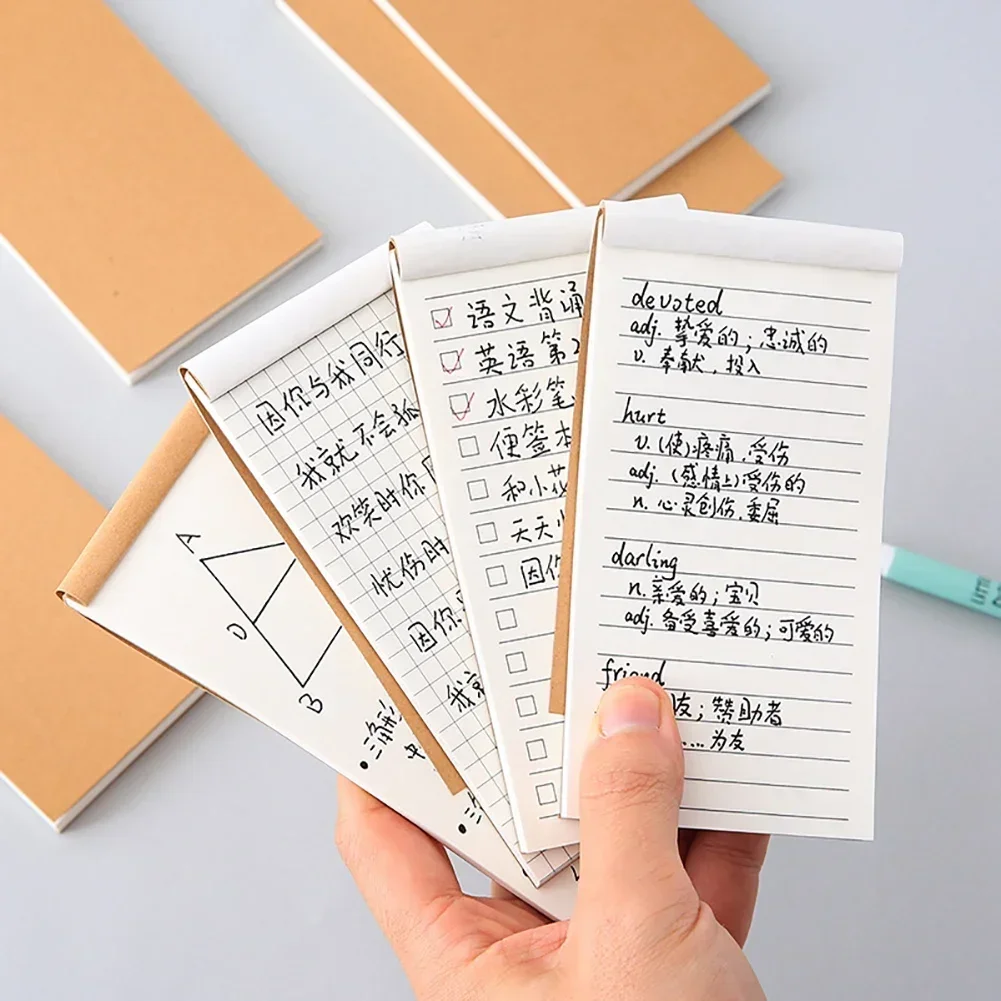 devoted
adj. 挚爱的；忠诚的
v. 奉献，投入
hurt
v. (使)疼痛，受伤
adj. (感情上)受伤的
n. 心灵创伤，委屈
darling
n. 亲爱的；宝贝
adj. 备受喜爱的；可爱的
friend
友；赞助者
...为友
语文背诵
英语第2
水彩笔
便签本
和小花
天天
因你
因你与我同行
我就不会孤
欢笑时你
忧伤时
因你
我就
A
D
B
三角形
中